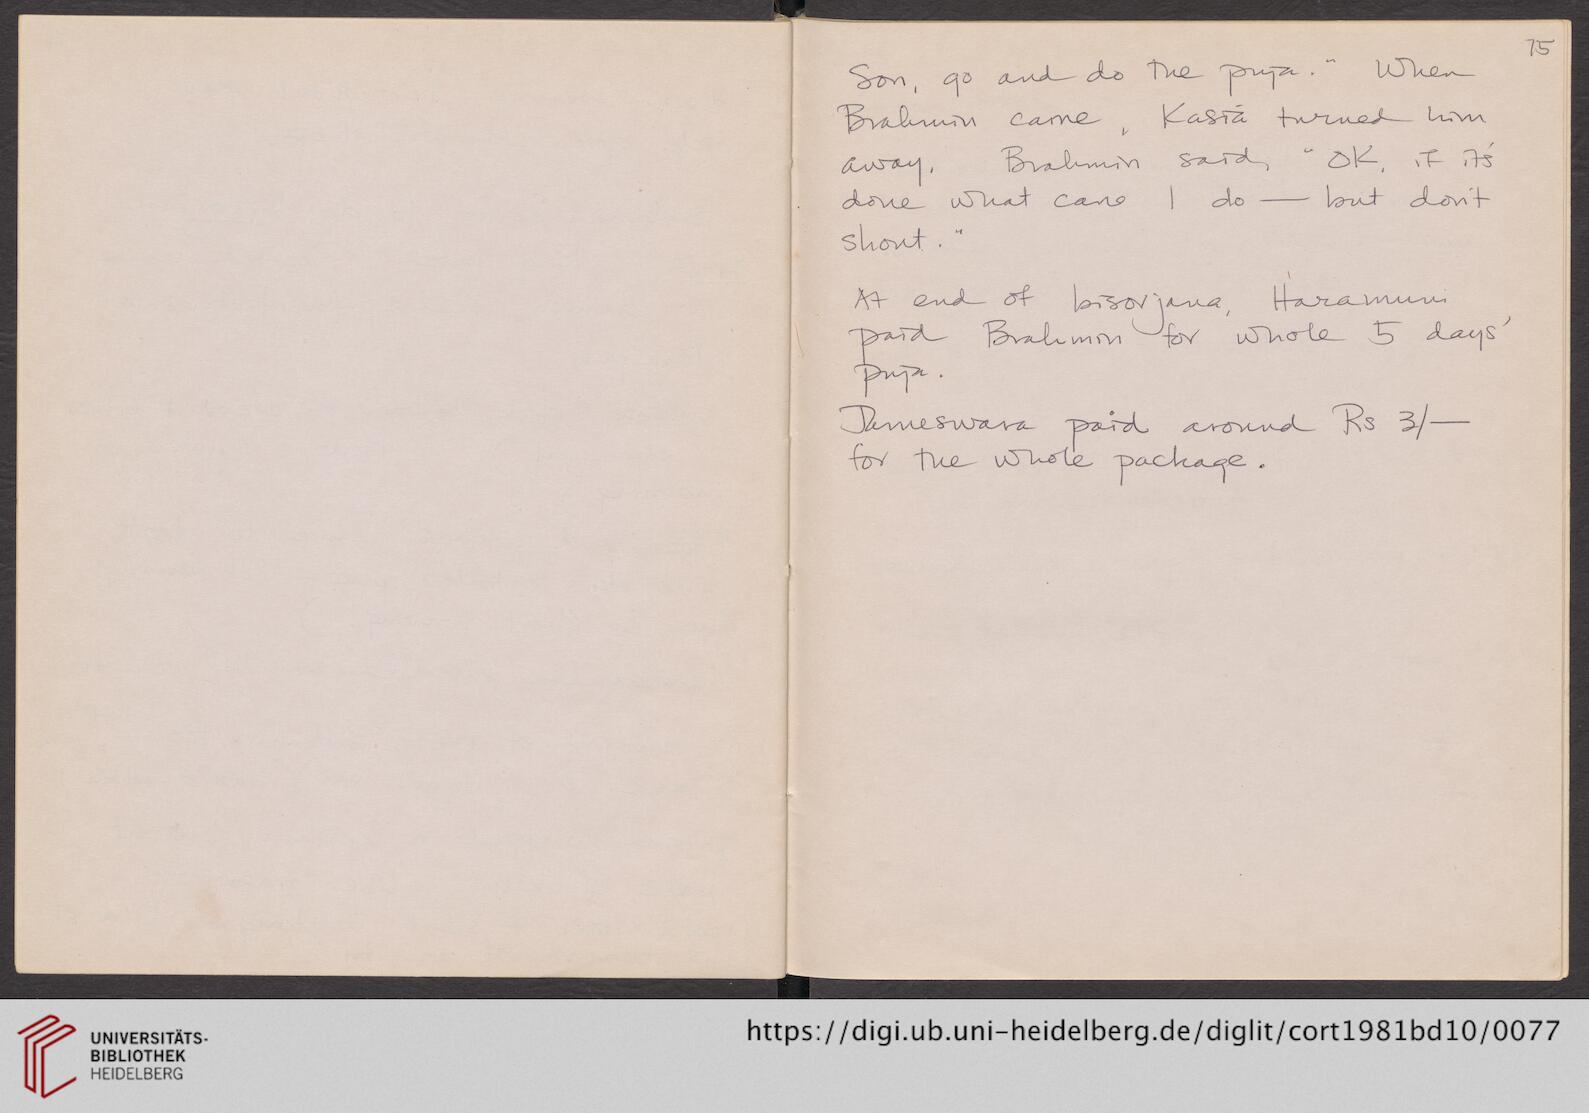 75
Son, go and do the puja." When
Brahmin came, Kasiā turned him
away. Brahmin said, "OK, if it's
done what cane I do — but don't
shout."
At end of bisorjana, Haramuni
paid Brahmin for whole 5 days'
puja.
Dameswara paid around Rs 3/—
for the whole package.
UNIVERSITÄTS-
BIBLIOTHEK
HEIDELBERG
https://digi.ub.uni-heidelberg.de/diglit/cort1981bd10/0077